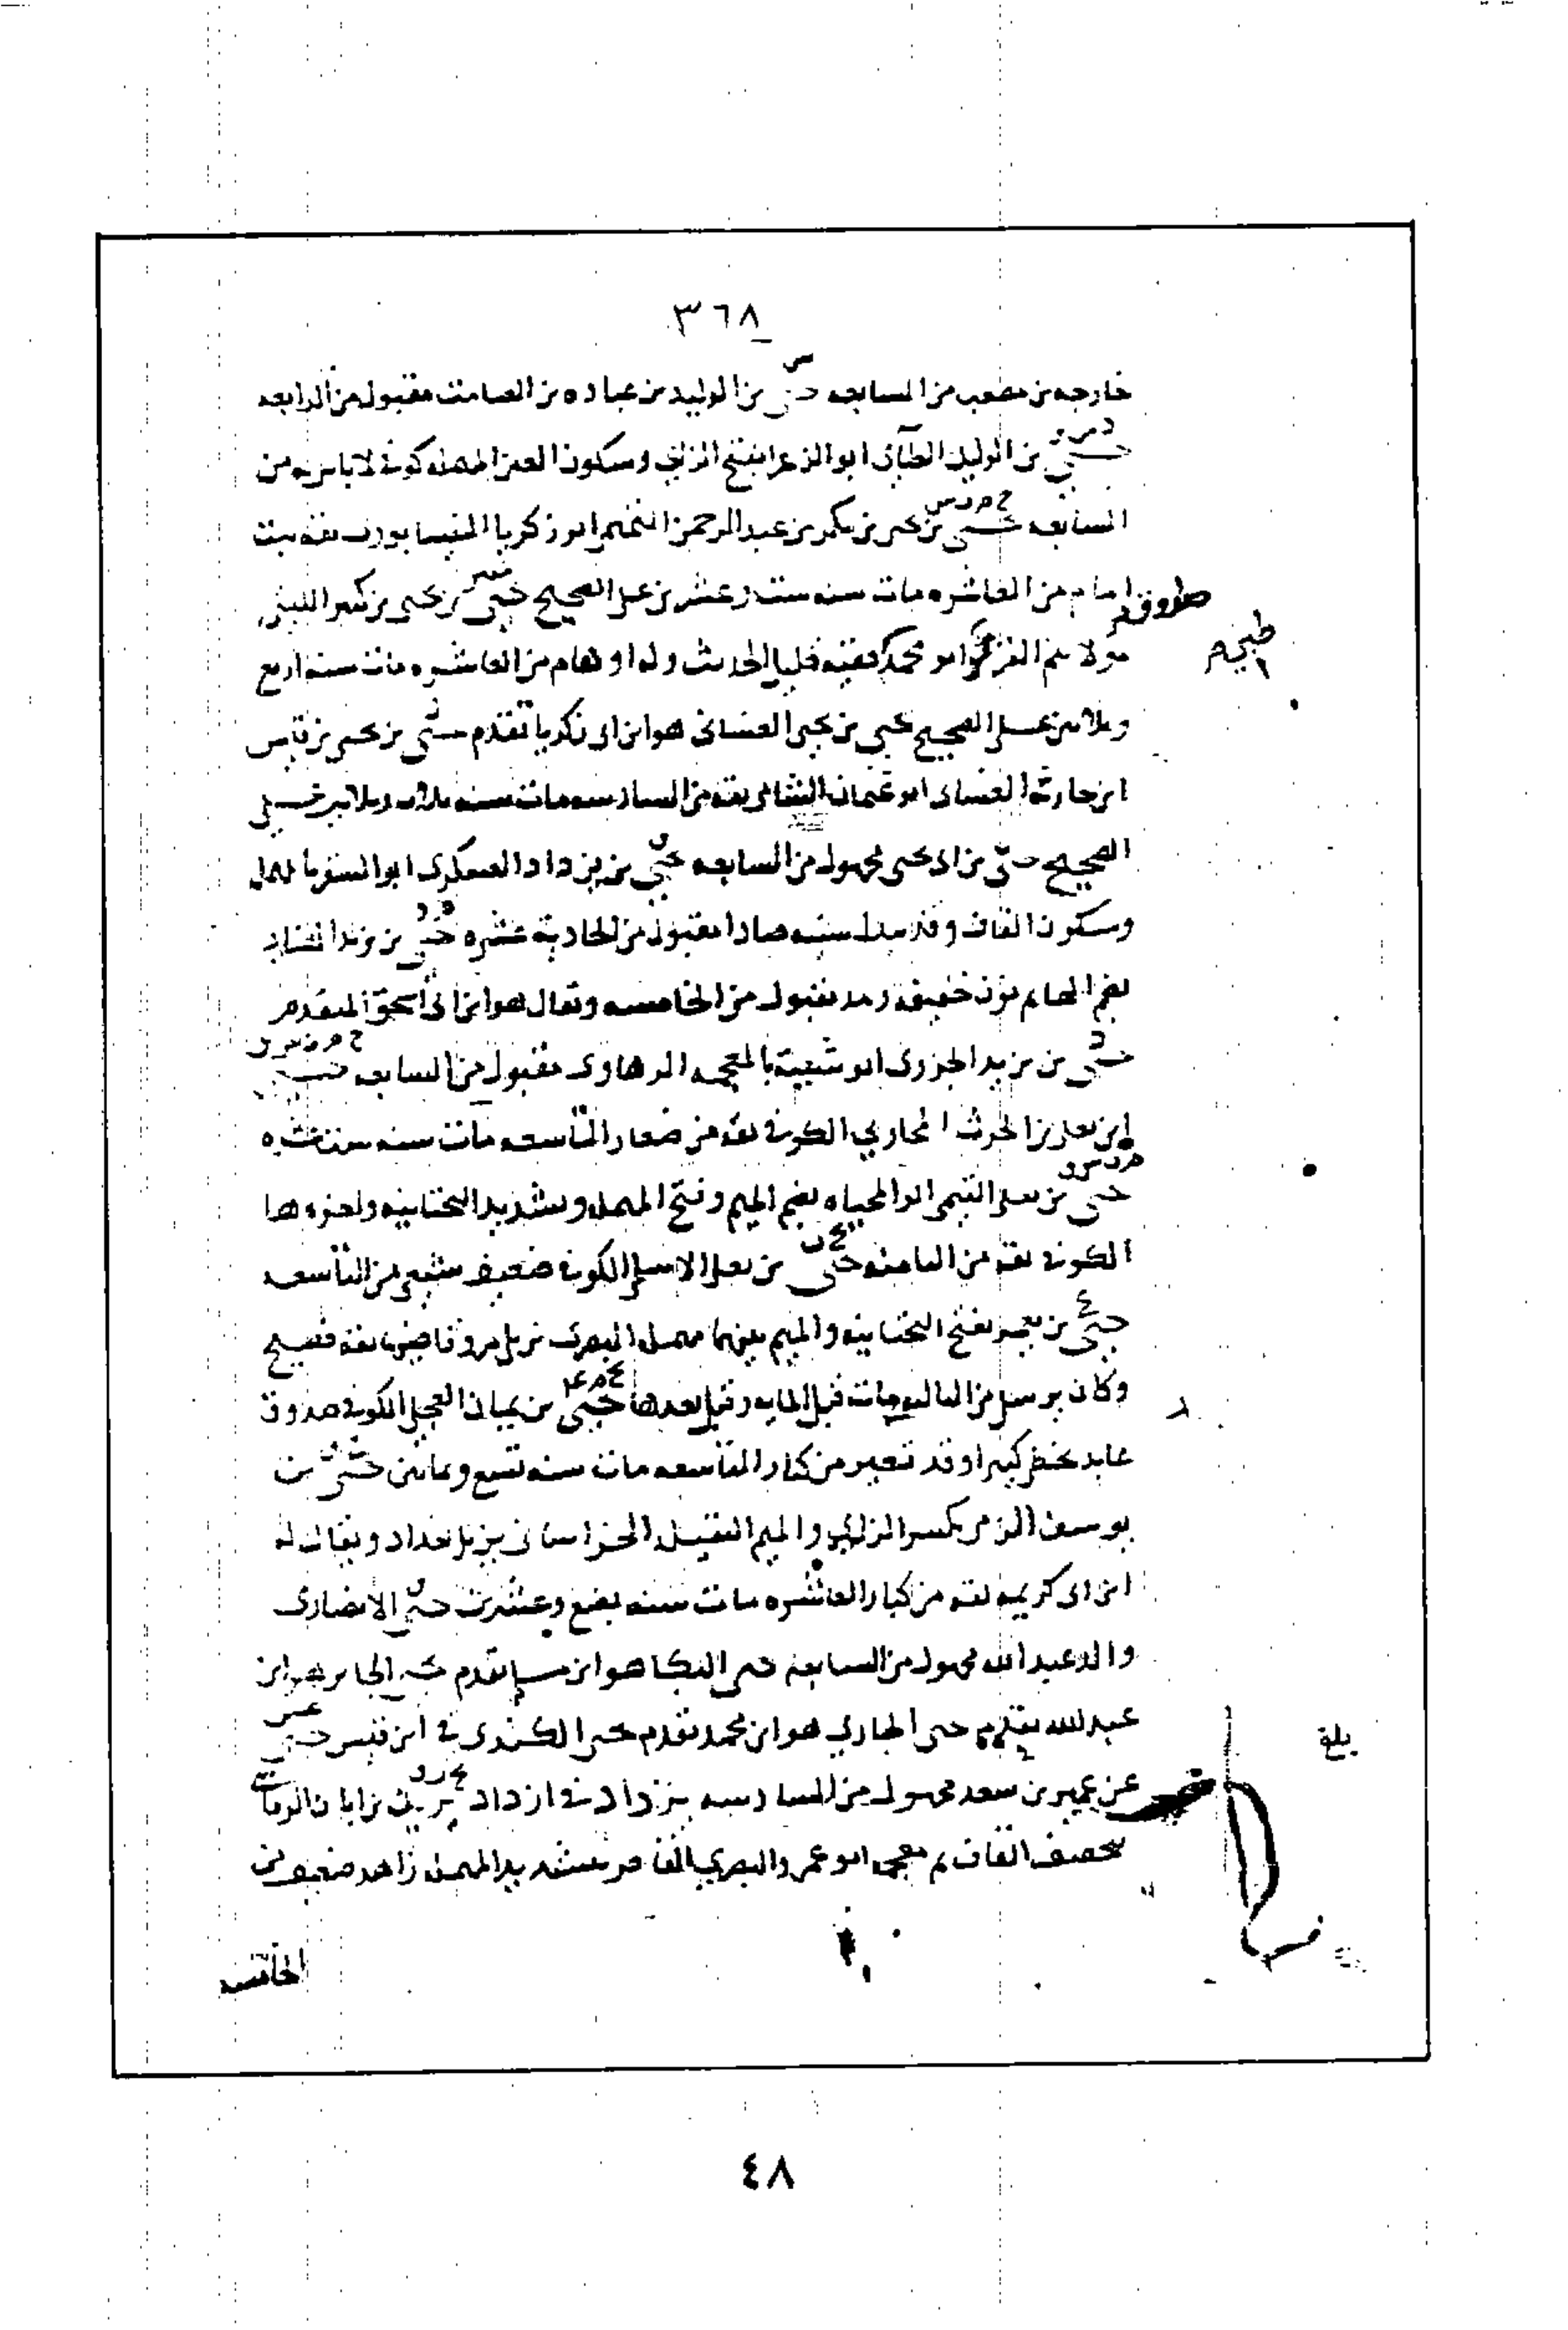 ٣٦٨
خارجه بن مصعب من السابعه يحيى بن الوليد بن عباده بن الصامت مقبول من الرابعه
س
يحيى بن الوليد الطائي ابو الزعرا بفتح الزاي وسكون العين المهمله كوفي لا باس به من
السابعه يحيى بن يحيى بن بكر بن عبد الرحمن التميمي ابو زكريا النيسابوري ثقه ثبت
خ م ت س
امام من العاشره مات سنه ست وعشرين على الصحيح يحيى بن يحيى بن كثير الليثي
مولاهم القرطبي ابو محمد فقيه قليل الحديث وله اوهام من العاشره مات سنه اربع
وثلاثين على الصحيح يحيى بن يحيى الغساني هو ابن ابي زكريا تقدم يحيى بن يحيى بن قيس
ابن حارثه الغساني ابو عثمان الشامي ثقه من السادسه مات سنه ثلاث وثلاثين على
الصحيح يحيى بن ابي يحيى مجهول من السابعه يحيى بن يزداد العسكري ابو السقر بالمهمله
وسكون القاف وقد تبدل سينه صادا مقبول من الحاديه عشره يحيى بن يزيد الهنائي
بضم الهاء ثم نون خفيفه ومد مقبول من الخامسه ويقال هو ابن ابي اسحق المتقدم
يحيى بن يزيد الجزري ابو شيبة بالمعجمه الرهاوي مقبول من السابعه يحيى
ابن يعلى بن الحرث المحاربي الكوفي ثقه من صغار التاسعه مات سنه ست عشره
يحيى بن يعلى التيمي ابو المحياه بضم الميم وفتح المهمله وتشديد التحتانيه واخره ها
الكوفي ثقه من الثامنه يحيى بن يعلى الاسلمي الكوفي ضعيف شيعي من التاسعه
ع
يحيى بن يعمر بفتح التحتانيه والميم بينهما مهمله البصري نزيل مرو وقاضيها ثقه فصيح
وكان يرسل من الثالثه مات قبل المايه وقيل بعدها يحيى بن يمان العجلي الكوفي صدوق
عابد يخطئ كثيرا وقد تغير من كبار التاسعه مات سنه تسع وثمانين يحيى بن
يوسف الزمي بكسر الزاي والميم الثقيله الخراساني نزيل بغداد ويقال له
ابن ابي كريمه ثقه من كبار العاشره مات سنه بضع وعشرين يحيى الانصاري
والد عبد الله مجهول من السابعه يحيى البكا هو ابن مسلم تقدم يحيى الجابر هو ابن
عبد الله تقدم يحيى الجاري هو ابن محمد تقدم يحيى الكندي في ابن قيس يحيى
بلغ
عن عمير بن سعد مجهول من السادسه يزداد في ازداد يزيد بن ابان الرقاشي
بتخفيف القاف ثم معجمه ابو عمرو البصري القاص بتشديد المهمله زاهد ضعيف من
الخامسه
٤٨